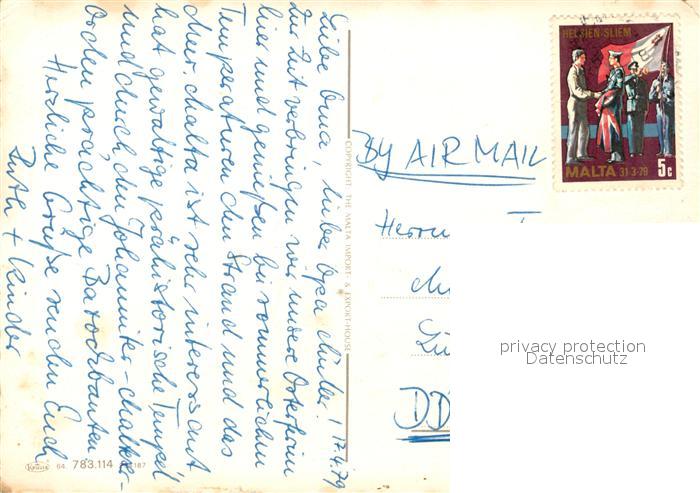 Liebe Oma, lieber Opa Müller! 17.4.79
Zur Zeit verbringen wir unsere Osterferien
hier und genießen bei sommerlichen
Temperaturen den Strand und das
Meer. Malta ist sehr interessant
hat gewaltige prähistorische Tempel
und durch den Johanniter-Malteser-
orden prächtige Barockbauten
Herzliche Grüße senden Euch
Ruth + Kinder
COPYRIGHT: THE MALTA IMPORT & EXPORT-HOUSE
Krüger 64. 783.114 187
HELSIEN-SLIEM
MALTA 31·3·79 5c
BY AIR MAIL
Herrn
DD
privacy protection
Datenschutz